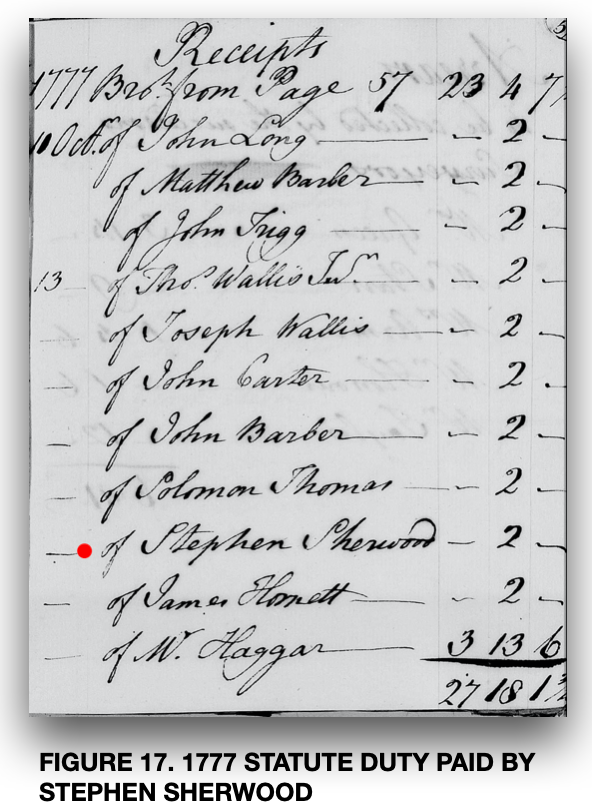 Receipts
1777 Bro.t from Page 57 23 4 7
10 Oct.r of John Long — - 2 -
of Matthew Barber — - 2 -
of John Trigg — - 2 -
13 of Tho.s Wallis Jun.r — - 2 -
— of Joseph Wallis — - 2 -
— of John Carter — - 2 -
— of John Barber — - 2 -
— of Solomon Thomas — - 2 -
— of Stephen Sherwood - 2 -
— of James Hornett — - 2 -
— of Mr. Haggar — 3 13 6
27 18 1
FIGURE 17. 1777 STATUTE DUTY PAID BY
STEPHEN SHERWOOD